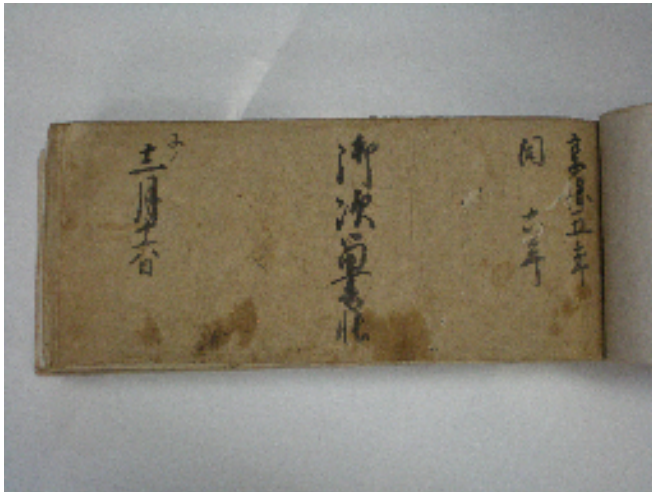 享保五年
同 十六年
御次留書帳
子ノ
十二月十六日